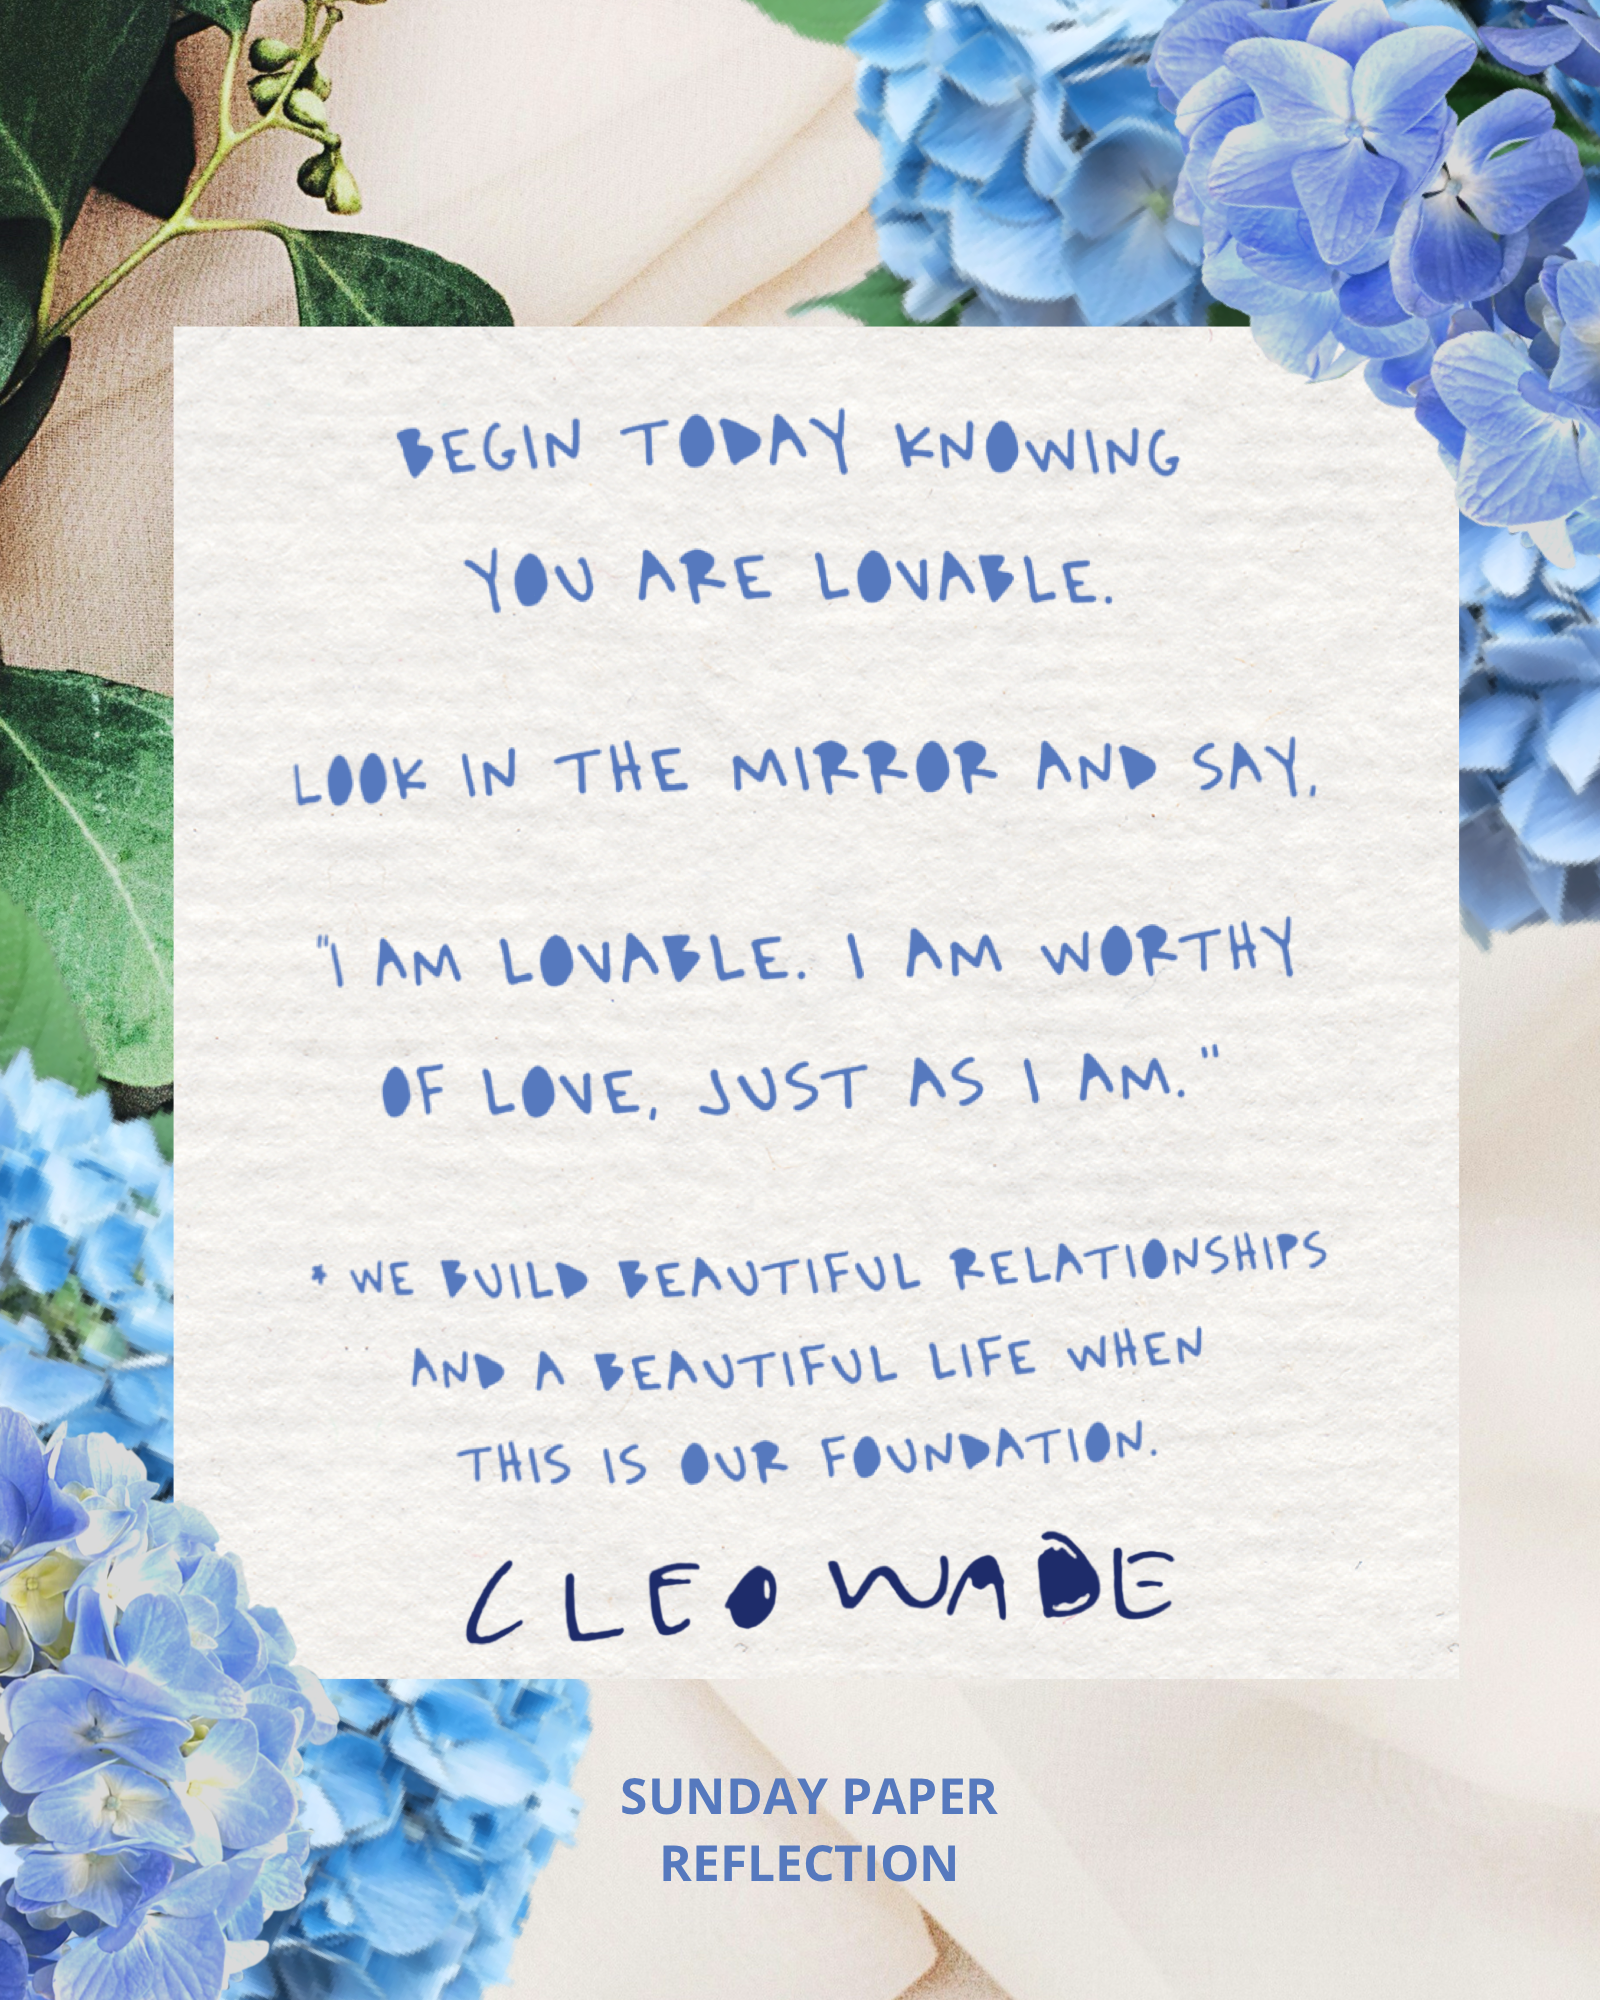 BEGIN TODAY KNOWING
YOU ARE LOVABLE.
LOOK IN THE MIRROR AND SAY,
"I AM LOVABLE. I AM WORTHY
OF LOVE, JUST AS I AM."
* WE BUILD BEAUTIFUL RELATIONSHIPS
AND A BEAUTIFUL LIFE WHEN
THIS IS OUR FOUNDATION.
CLEO WADE
SUNDAY PAPER
REFLECTION